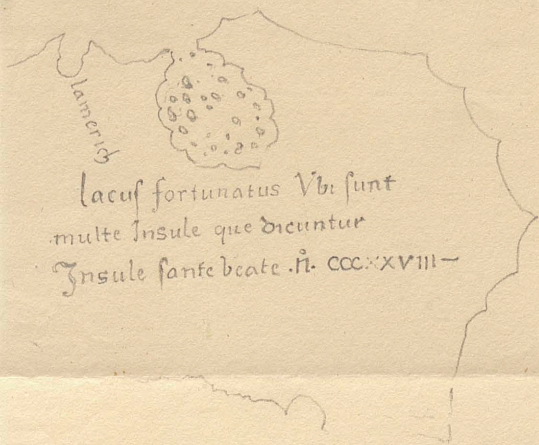 lamerich
lacuſ fortunatus Vbi ſunt
multe Insule que dicuntur
Insule ſante beate .n̊. CCCXXVIII–